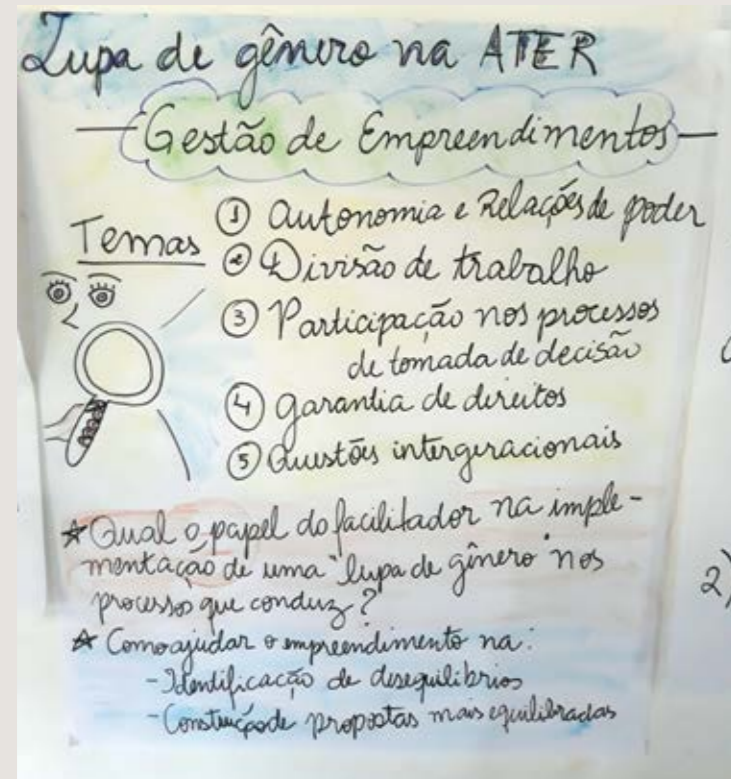 Lupa de gênero na ATER
Gestão de Empreendimentos
Temas
① Autonomia e Relações de poder
② Divisão de trabalho
③ Participação nos processos
de tomada de decisão
④ Garantia de direitos
⑤ Questões intergeracionais
★ Qual o papel do facilitador na imple-
mentação de uma "lupa de gênero" nos
processos que conduz?
★ Como ajudar o empreendimento na:
- Identificação de desequilíbrios
- Construção de propostas mais equilibradas
2)